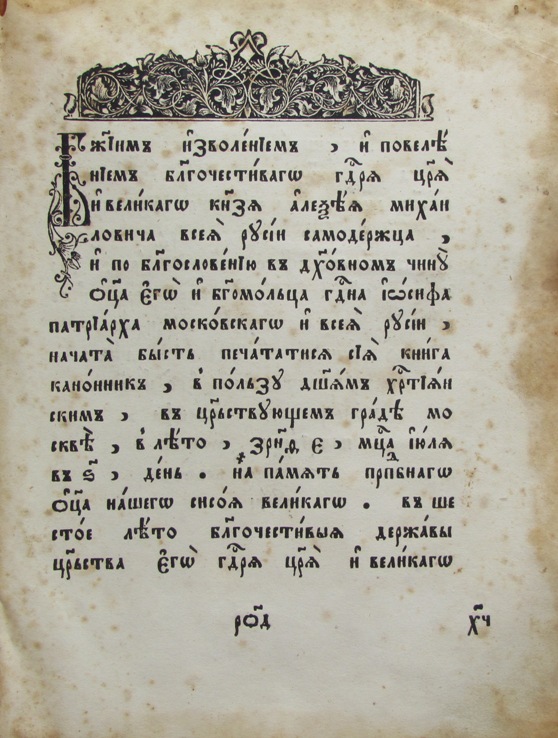 Бж҃іимъ и҆зволе́нїемъ , и҆ повелѣ́
нїемъ бл҃гочести́вагѡ гдⷭ҇рѧ црѧ̀
и҆ вели́кагѡ кнѧ́зѧ а҆леѯѣ́ѧ миха́и
ловича всеѧ̀ рꙋсі́и самоде́ржца ,
и҆ по бл҃гослове́нїю въ дꙋхо́вномъ чи́нꙋ
ѻ҆ц҃а є҆гѡ̀ и҆ бг҃омо́льца гдⷭ҇на і҆ѡ́сифа
патрїа́рха моско́вскагѡ и҆ всеѧ̀ рꙋсі́и ,
нача́та бы́сть печа́татисѧ сїѧ̀ кни́га
кано́нникъ , в по́льзꙋ дш҃а́мъ хрⷭ҇тїѧ́н
скимъ , въ црⷭ҇твꙋющемъ гра́дѣ мо
сквѣ̀ , в лѣ́то , ҂зрн҃ѳ є , мцⷭ҇а і҆ю́лѧ
въ ѕ҃ , де́нь . на па́мѧть прпⷣбнагѡ
ѻ҆ц҃а на́шегѡ сисо́ѧ вели́кагѡ . въ ше
сто́е лѣ́то бл҃гочести́выѧ держа́вы
црⷭ҇тва є҆гѡ̀ гдⷭ҇рѧ црѧ̀ и҆ вели́кагѡ
рѻ҃д
х҃ч